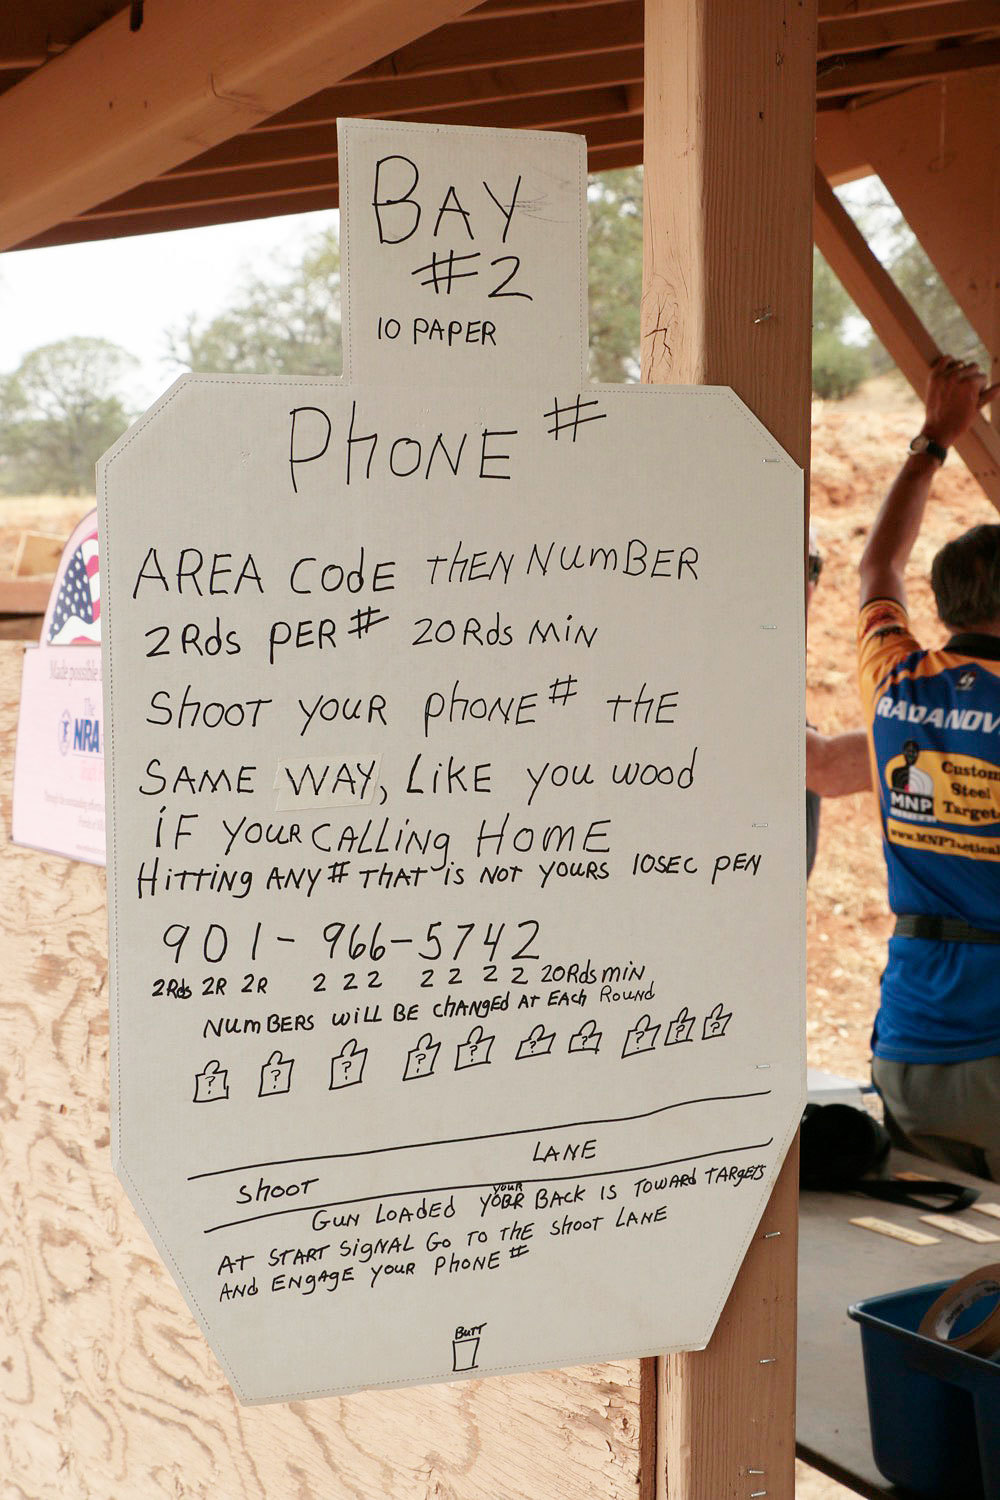 BAY
#2
10 PAPER
PHONE #
AREA CODE THEN NUMBER
2Rds PER # 20Rds MIN
SHOOT YOUR PHONE # THE
SAME WAY, LIKE YOU WOOD
IF YOUR CALLING HOME
HITTING ANY # THAT IS NOT YOURS 10SEC PEN
901-966-5742
2Rds 2R 2R 2 2 2 2 2 2 2 20Rds MIN
NUMBERS WILL BE CHANGED AT EACH ROUND
? ? ? ? ? ? ? ? ? ?
LANE
SHOOT
YOUR
GUN LOADED BACK IS TOWARD TARGETS
AT START SIGNAL GO TO THE SHOOT LANE
AND ENGAGE YOUR PHONE #
BUTT
Made possible
The
NRA
RADANOV
Custom
Steel
Target
MNP
www.MNPTactical